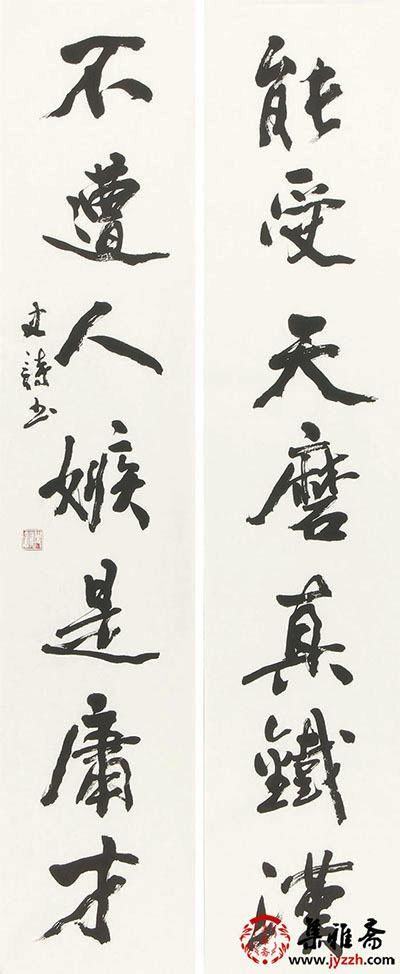 能受天磨真鐵漢
不遭人嫉是庸才
集雅斋
www.jyzzh.com